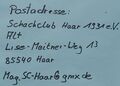 Postadresse:
Schachclub Haar 1931 e.V.
Alt
Lise-Meitner-Weg 13
85540 Haar
Mag.SC-Haar@gmx.de